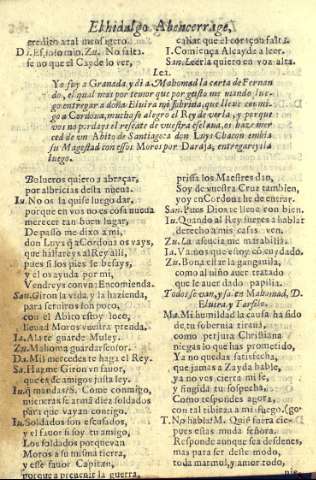 El hidalgo Abencerrage,
credito atal mensagero.
D. Es, so Zu. No falta.
se no que el Cayde lo ver,
cabar que el corazon salta.
I. Comiença Alcayde a leer.
San. Leerla quiero en voz alta.
Lee.
Yo fuy a Granada y di a Mahomad la carta de Fernan-
do, el qual mas por temor que por gusto me mando, lue-
go entregar a doña Eluira mi sobrina, que lleue con mi-
go a Cordoua, mucho se alegro el Rey de verla, y porque
vos no perdays el rescate de vuestra esclaua, os haze mer-
ced de vn Abito de Santiago, a don Luys Chacon embia
su Magestad con essos Moros por Daraja, entregaryyla
luego.
Bolueros quiero a abraçar,
por albricias desta nueua.
Iu. No os la quise luego dar,
porque en vos no es cosa nueua
merecer tan buen lugar,
De passo me dixo a mi,
don Luys q̃ a Cordoua os vays,
que hallareys al Rey alli,
pues si los pies le besays,
y el os ayuda por mi,
Vendreys con vn Encomienda.
San. Giron la vida y la hazienda,
para seruiros son poco,
con el Abito estoy loco,
lleuad Moros vuestra prenda.
Ia. Ala te guarde Muley.
Zu. Mahoma guardar señor.
Da. Mil mercedes te haga el Rey.
Sa. Hazme Giron vn fauor,
que es de amigos justa ley.
Iu. q̃ mandays. Sa. Come conmigo,
mientras se arma diez soldados
para que vayan contigo.
Iu. Soldados son escusados,
y el fauor si soy tu amigo,
Los soldados porque van
Moros a su misma tierra,
y esse fauor Capitan,
porque a preuenir la guerra,
prissa los Maestres dan,
Soy de vuestra Cruz tambien,
yoy en Cordoua he de entrar.
San. Pues Dios te lleue con bien.
In. Quando al Rey fueres a hablar
derecho a mis casas ven.
Zu. La asencia me marabilla.
Ia. Vamos que estoy con cuydado.
Zu. Bona estar la ganganilla,
como al niño auer tratado
que le auer dado papilla.
Todos se van, y salen Mahomad, D.
Eluira y Tarfico.
Ma. Mi humildad la causa ha sido
de tu soberuia tirana,
como perjura Christiana
niegas lo que has prometido,
Ya no quedas satisfecha,
que jamas a Zayda hable,
ya no ves cierta mi fe,
y fingida tu sospecha,
Como respondes agora,
con tal tibieza a mi fuego. (go-
T. No habla? M. Quiẽ fuera cie-
pues estas muda señora.
Responde aunque sea desdenes,
mas para ser deste modo,
toda marmol, y amor todo,